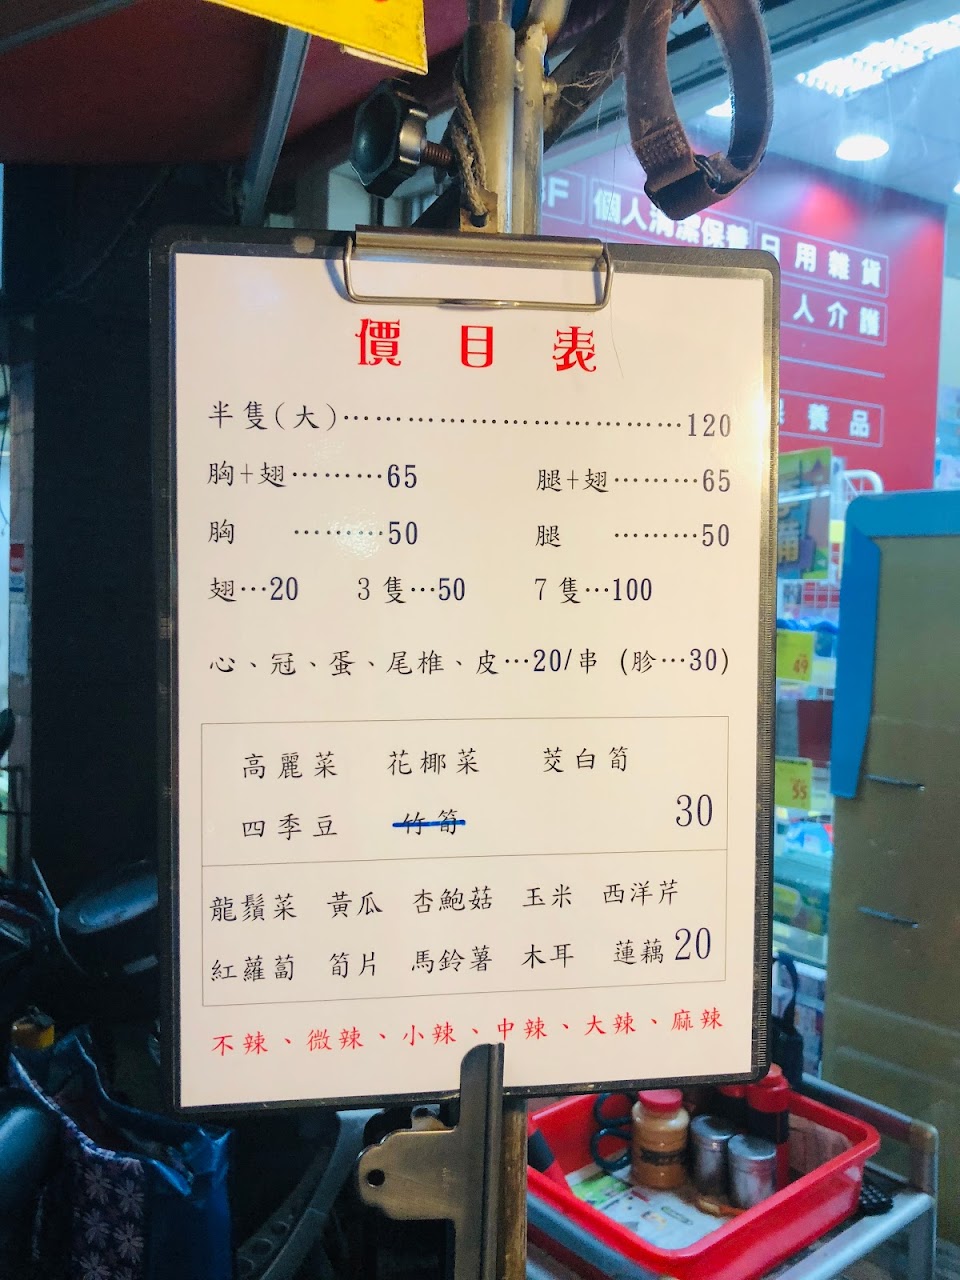 價目表
半隻(大)………………………………120
胸+翅………65
腿+翅………65
胸 ………50
腿 ………50
翅…20 3隻…50 7隻…100
心、冠、蛋、尾椎、皮…20/串 (胗…30)
高麗菜 花椰菜 茭白筍
四季豆 竹筍 30
龍鬚菜 黃瓜 杏鮑菇 玉米 西洋芹
紅蘿蔔 筍片 馬鈴薯 木耳 蓮藕 20
不辣、微辣、小辣、中辣、大辣、麻辣
個人清潔保養
日用雜貨
人介護
養品
49
55